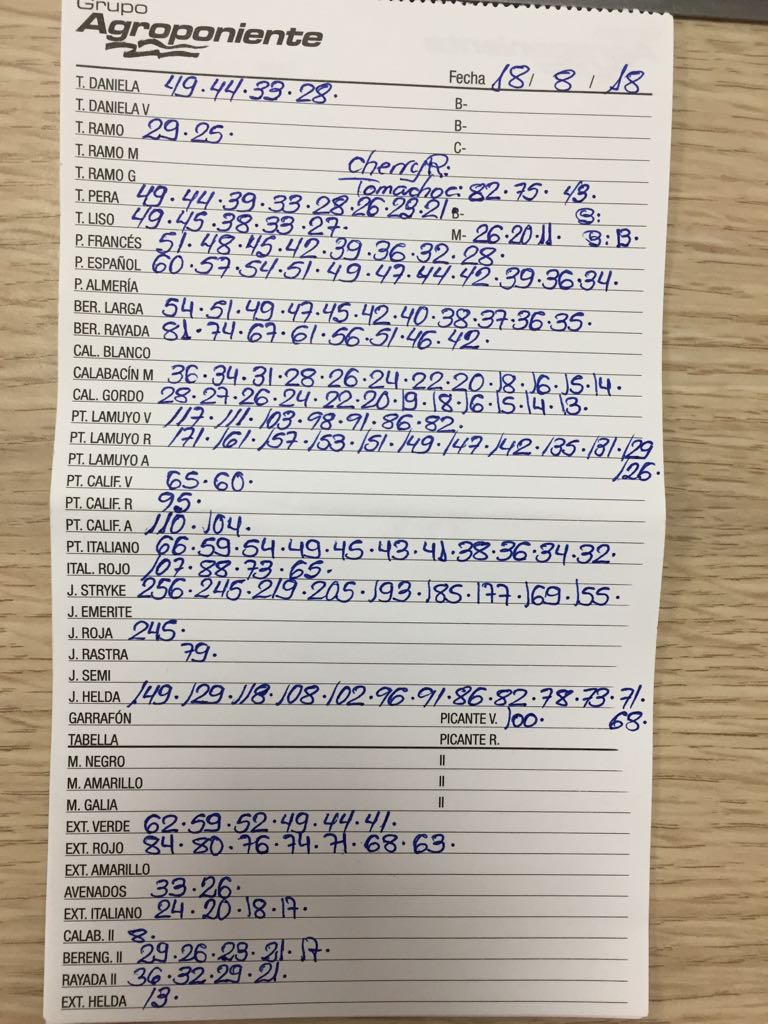 Grupo
Agroponiente
Fecha 18 / 8 / 18
T. DANELA 49·44·33·28· B-
T. DANIELA V B-
T. RAMO 29·25· C-
T. RAMO M CherryR:
T. RAMO G Tomachoc: 82·75· 43·
T. PERA 49·44·39·33·28·26·23·21· B- S:
T. LISO 49·45·38·33·27· M- 26·20·11· B: B·
P. FRANCÉS 51·48·45·42·39·36·32·28·
P. ESPAÑOL 60·57·54·51·49·47·44·42·39·36·34·
P. ALMERÍA
BER. LARGA 54·51·49·47·45·42·40·38·37·36·35·
BER. RAYADA 81·74·67·61·56·51·46·42·
CAL. BLANCO
CALABACÍN M 36·34·31·28·26·24·22·20·18·16·15·14·
CAL. GORDO 28·27·26·24·22·20·19·18·16·15·14·13·
PT. LAMUYO V 117·111·103·98·91·86·82·
PT. LAMUYO R 171·161·157·153·151·149·147·142·135·131·129
PT. LAMUYO A 126·
PT. CALIF. V 65·60·
PT. CALIF. R 95·
PT. CALIF. A 110·104·
PT. ITALIANO 66·59·54·49·45·43·41·38·36·34·32·
ITAL. ROJO 107·88·73·65·
J. STRYKE 256·245·219·205·193·185·177·169·155·
J. EMERITE
J. ROJA 245·
J. RASTRA 79·
J. SEMI
J. HELDA 149·129·118·108·102·96·91·86·82·78·73·71·
GARRAFÓN PICANTE V. 100· 68·
TABELLA PICANTE R.
M. NEGRO II
M. AMARILLO II
M. GALIA II
EXT. VERDE 62·59·52·49·44·41·
EXT. ROJO 84·80·76·74·71·68·63·
EXT. AMARILLO
AVENADOS 33·26·
EXT. ITALIANO 24·20·18·17·
CALAB. II 8·
BERENG. II 29·26·23·21·17·
RAYADA II 36·32·29·21·
EXT. HELDA 13·